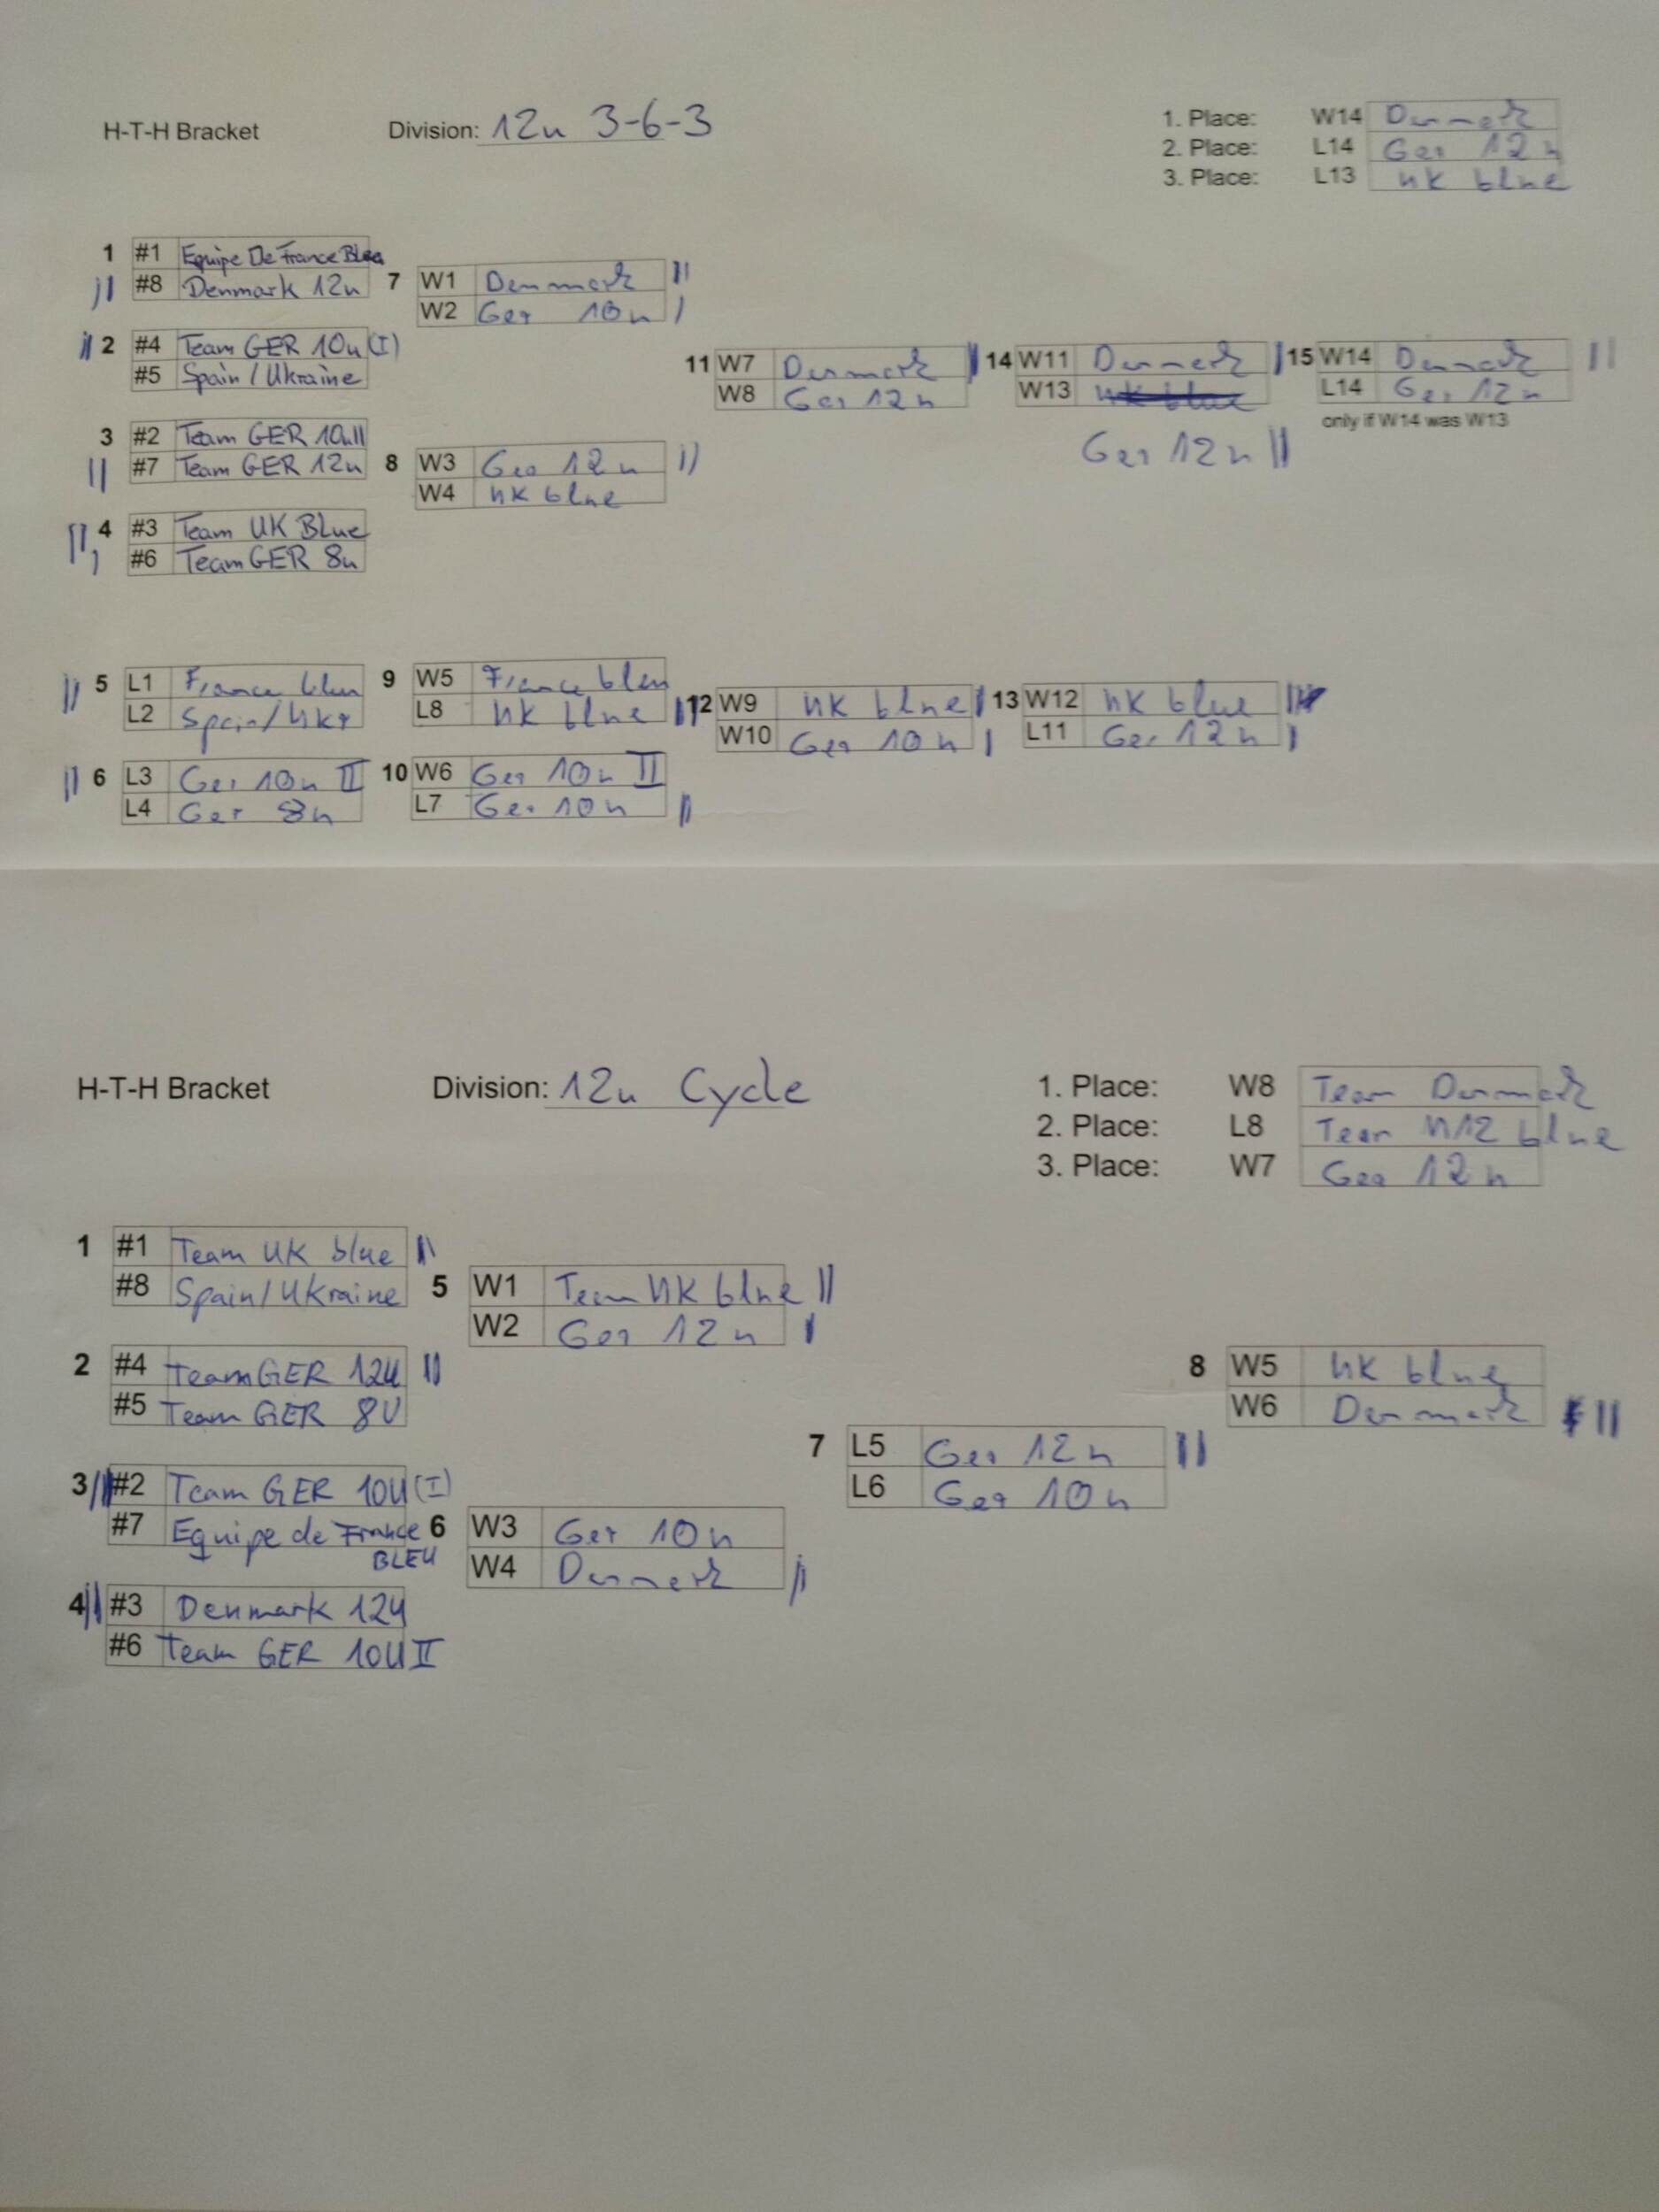 H-T-H Bracket Division: 12u 3-6-3
1. Place: W14 Denmark
2. Place: L14 Ger 12u
3. Place: L13 UK blue
1 #1 Equipe De France Bleu
#8 Denmark 12u
2 #4 Team GER 10u (I)
#5 Spain / Ukraine
3 #2 Team GER 10u II
#7 Team GER 12u
4 #3 Team UK Blue
#6 Team GER 8u
7 W1 Denmark
W2 Ger 10u
8 W3 Ger 12u
W4 UK blue
11 W7 Denmark
W8 Ger 12u
14 W11 Denmark
W13 UK blue
Ger 12u
15 W14 Denmark
L14 Ger 12u
only if W14 was W13
5 L1 France bleu
L2 Spain/Ukr
6 L3 Ger 10u II
L4 Ger 8u
9 W5 France bleu
L8 UK blue
10 W6 Ger 10u II
L7 Ger 10u
12 W9 UK blue
W10 Ger 10u
13 W12 UK blue
L11 Ger 12u
H-T-H Bracket Division: 12u Cycle
1. Place: W8 Team Denmark
2. Place: L8 Team UK blue
3. Place: W7 Ger 12u
1 #1 Team UK blue
#8 Spain/Ukraine
2 #4 Team GER 12U
#5 Team GER 8U
3 #2 Team GER 10U (I)
#7 Equipe de France
BLEU
4 #3 Denmark 12U
#6 Team GER 10U II
5 W1 Team UK blue
W2 Ger 12u
6 W3 Ger 10u
W4 Denmark
7 L5 Ger 12u
L6 Ger 10u
8 W5 UK blue
W6 Denmark